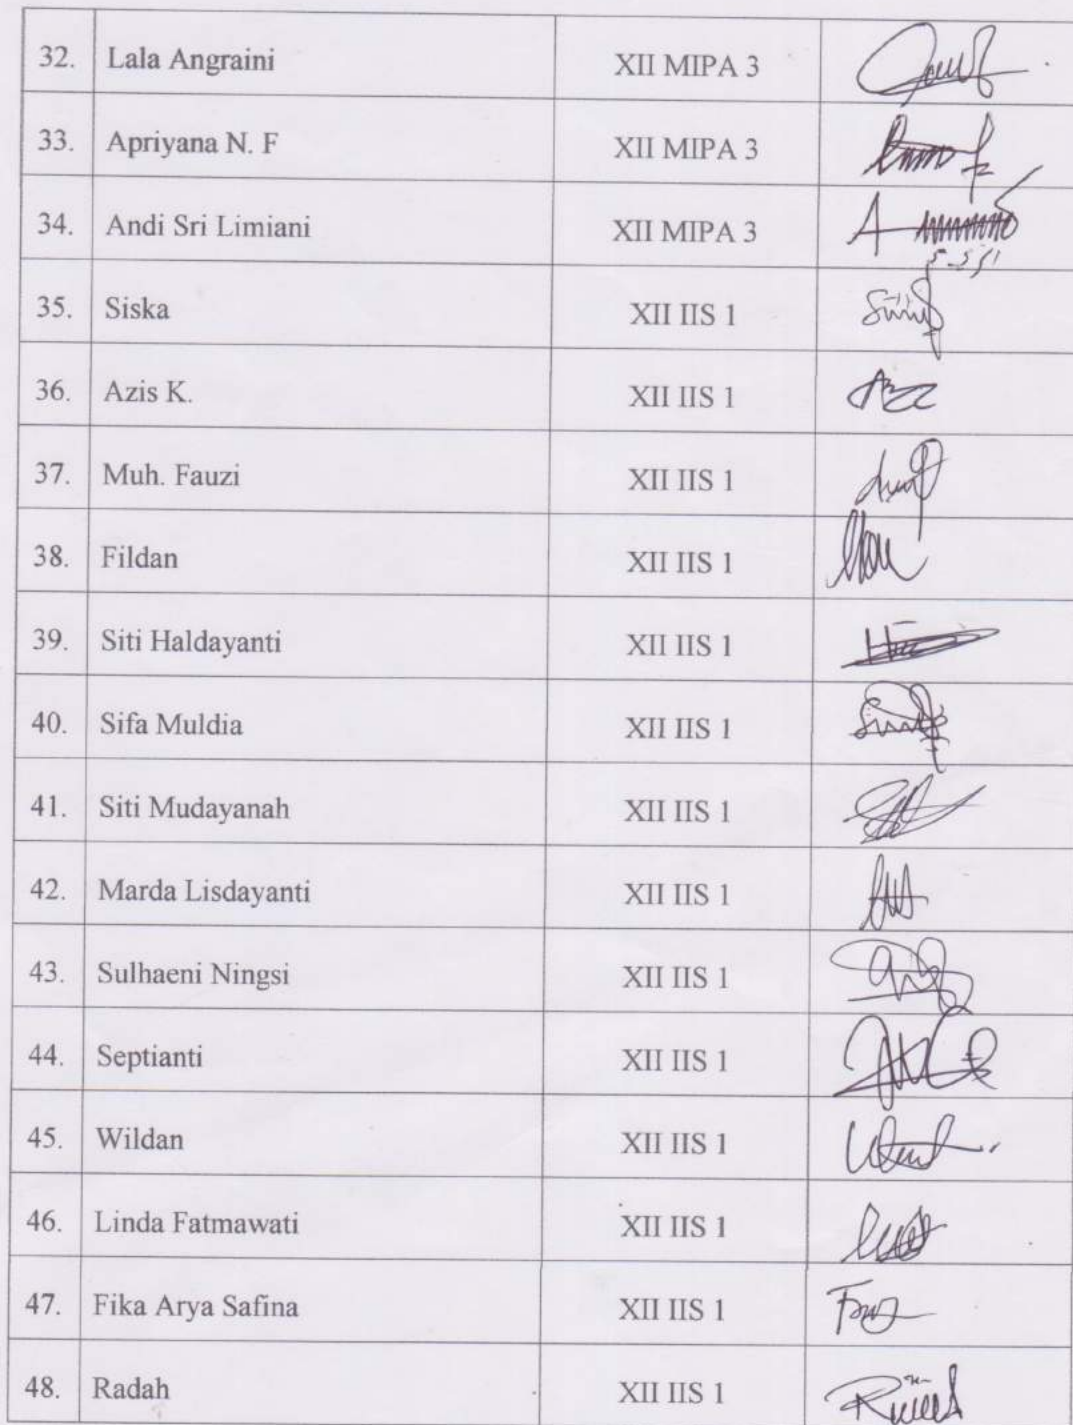 32. Lala Angraini XII MIPA 3
33. Apriyana N. F XII MIPA 3
34. Andi Sri Limiani XII MIPA 3
35. Siska XII IIS 1
36. Azis K. XII IIS 1
37. Muh. Fauzi XII IIS 1
38. Fildan XII IIS 1
39. Siti Haldayanti XII IIS 1
40. Sifa Muldia XII IIS 1
41. Siti Mudayanah XII IIS 1
42. Marda Lisdayanti XII IIS 1
43. Sulhaeni Ningsi XII IIS 1
44. Septianti XII IIS 1
45. Wildan XII IIS 1
46. Linda Fatmawati XII IIS 1
47. Fika Arya Safina XII IIS 1
48. Radah XII IIS 1